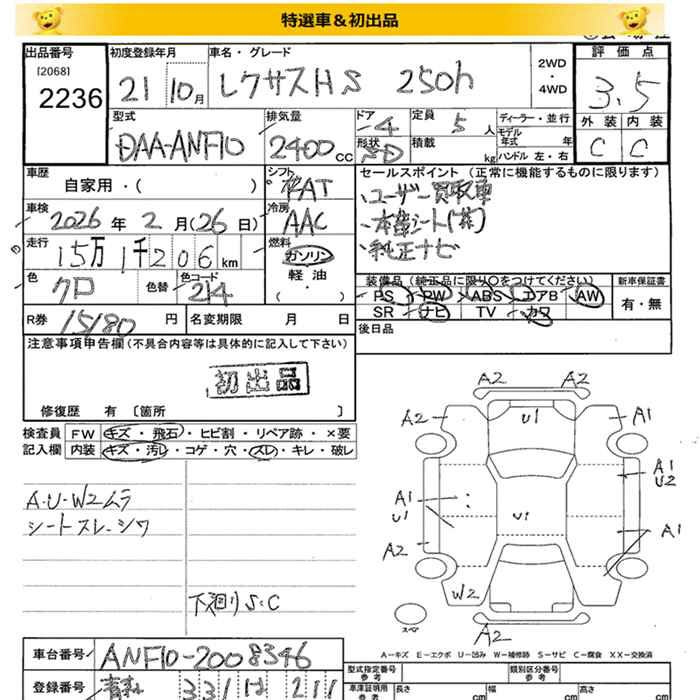 特選車＆初出品
出品番号 初度登録年月 車名・グレード 評価点
[2068]
2236
21 10月 レクサスHS 250h
2WD
・
4WD
3.5
型式 排気量 ドア 定員 ディーラー・並行 外装 内装
DAA-ANF10 2400cc 4 5人
モデル年式 年
形状 積載 kg ハンドル 左・右
SD C C
車歴 シフト セールスポイント (正常に機能するものに限ります)
自家用・( ) FAT
・ユーザー買取車
車検 冷房
2026年 2月(26日) AAC
・本革シート(黒)
走行 燃料
15万1千206km ガソリン
・純正ナビ
軽油
・
( )
色 色替 色コード
クロ 214
装備品 (純正品に限り○をつけてください) 新車保証書
PS PW ABS エアB AW 有・無
SR ナビ TV カワ
R券 15180円 名変期限 月 日
後日品
注意事項申告欄(不具合内容等は具体的に記入して下さい)
初出品
修復歴 有 〔箇所 〕
検査員 FW キズ・飛石・ヒビ割・リペア跡・×要
記入欄 内装 キズ・汚レ・コゲ・穴・スレ・キレ・破レ
A2 A2
A2 U1 A1
A・U・W2ムラ
シートスレ・シワ
A1 U2
A1 U1 U1 A1
A2
W2
下廻りS・C
スペア
A2
A－キズ E－エクボ U－凹み W－補修跡 S－サビ C－腐食 XX－交換済
車台番号 ANF10-2008346
型式指定番号 参考 類別区分番号 参考
登録番号 331 211
車庫証明用 参考 長さ cm 幅 cm 高さ cm